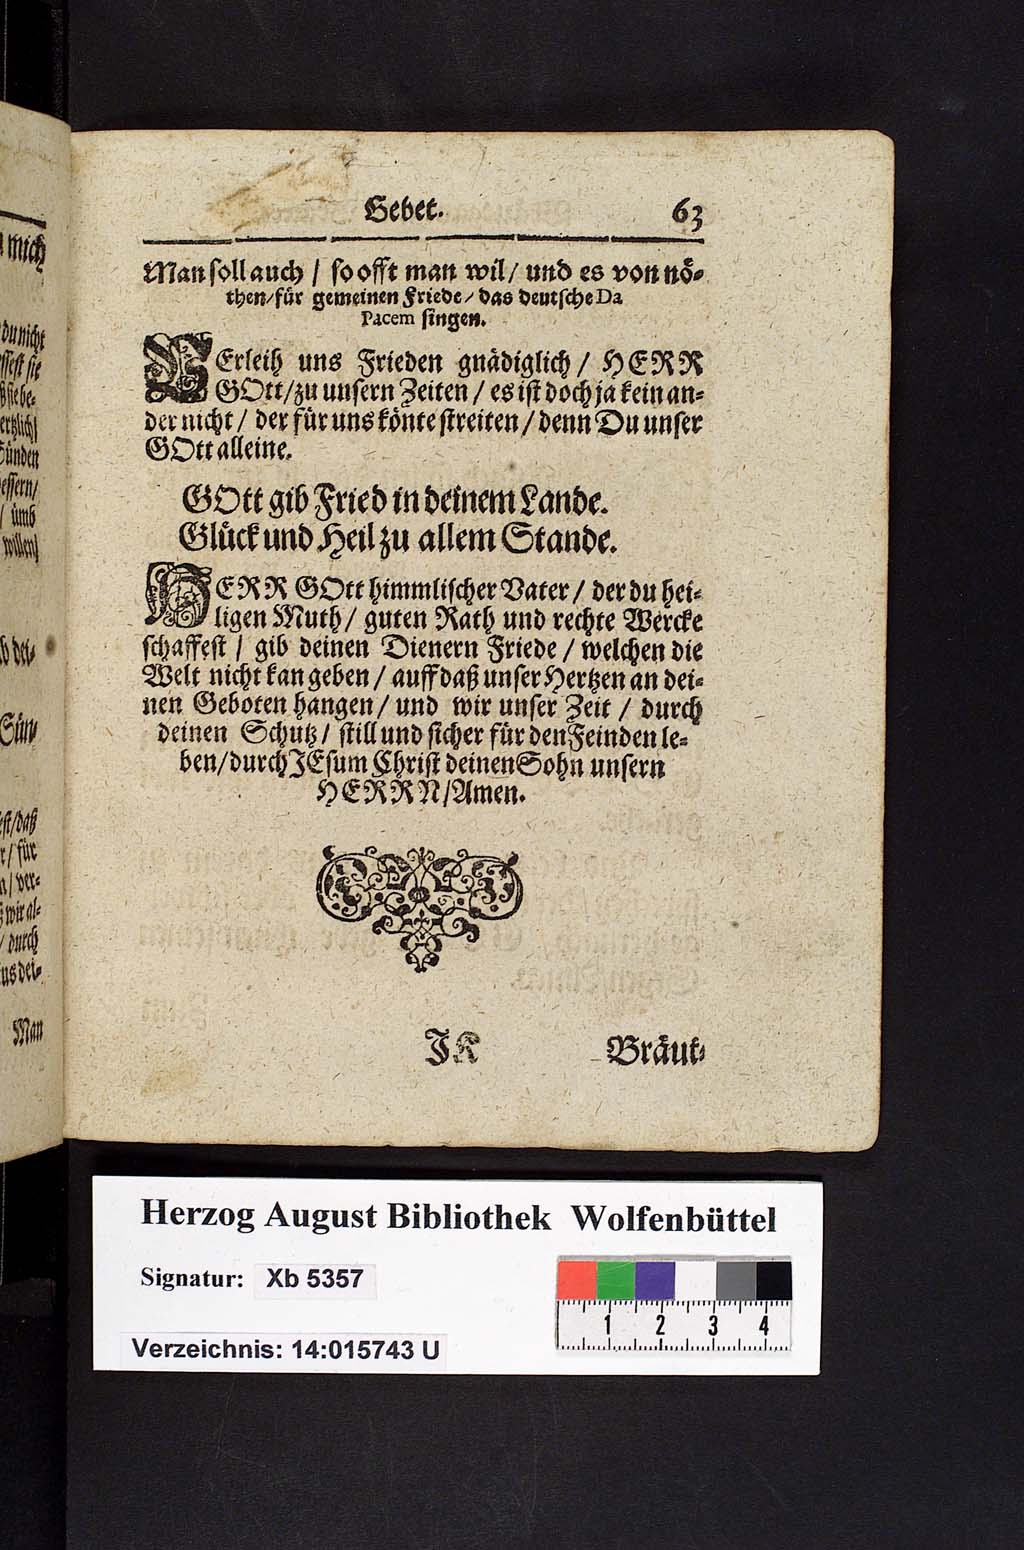 Gebet. 63
Man soll auch / so offt man wil / und es von nö-
then / für gemeinen Friede / das deutsche Da
Pacem singen.
VErleih uns Frieden gnädiglich / HERR
GOtt / zu unsern Zeiten / es ist doch ja kein an-
der nicht / der für uns könte streiten / denn Du unser
GOtt alleine.
GOtt gib Fried in deinem Lande.
Glück und Heil zu allem Stande.
HERR GOtt himmlischer Vater / der du hei-
ligen Muth / guten Rath und rechte Wercke
schaffest / gib deinen Dienern Friede / welchen die
Welt nicht kan geben / auff daß unser Hertzen an dei-
nen Geboten hangen / und wir unser Zeit / durch
deinen Schutz / still und sicher für den Feinden le-
ben / durch JEsum Christ deinen Sohn unsern
HERRN / Amen.
JK Bräut-
mich
du nicht
Sünden
essern /
/ ümb
willen /
Sün-
/ für
/ durch
Man
Herzog August Bibliothek Wolfenbüttel
Signatur: Xb 5357
Verzeichnis: 14:015743 U
1 2 3 4